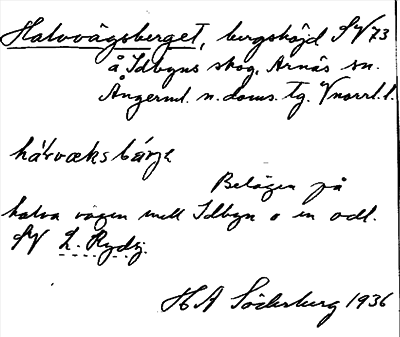 Halvvägsberget, bergshöjd SV 73
å Idbyns skog, Arnäs sn.
Ångerml. n. doms. tg. Vnorrl. l.
hálvæksbárjə
Belägen på
halva vägen mell Idbyn o en odl.
SV L. Rydsj.
H A Söderberg 1936